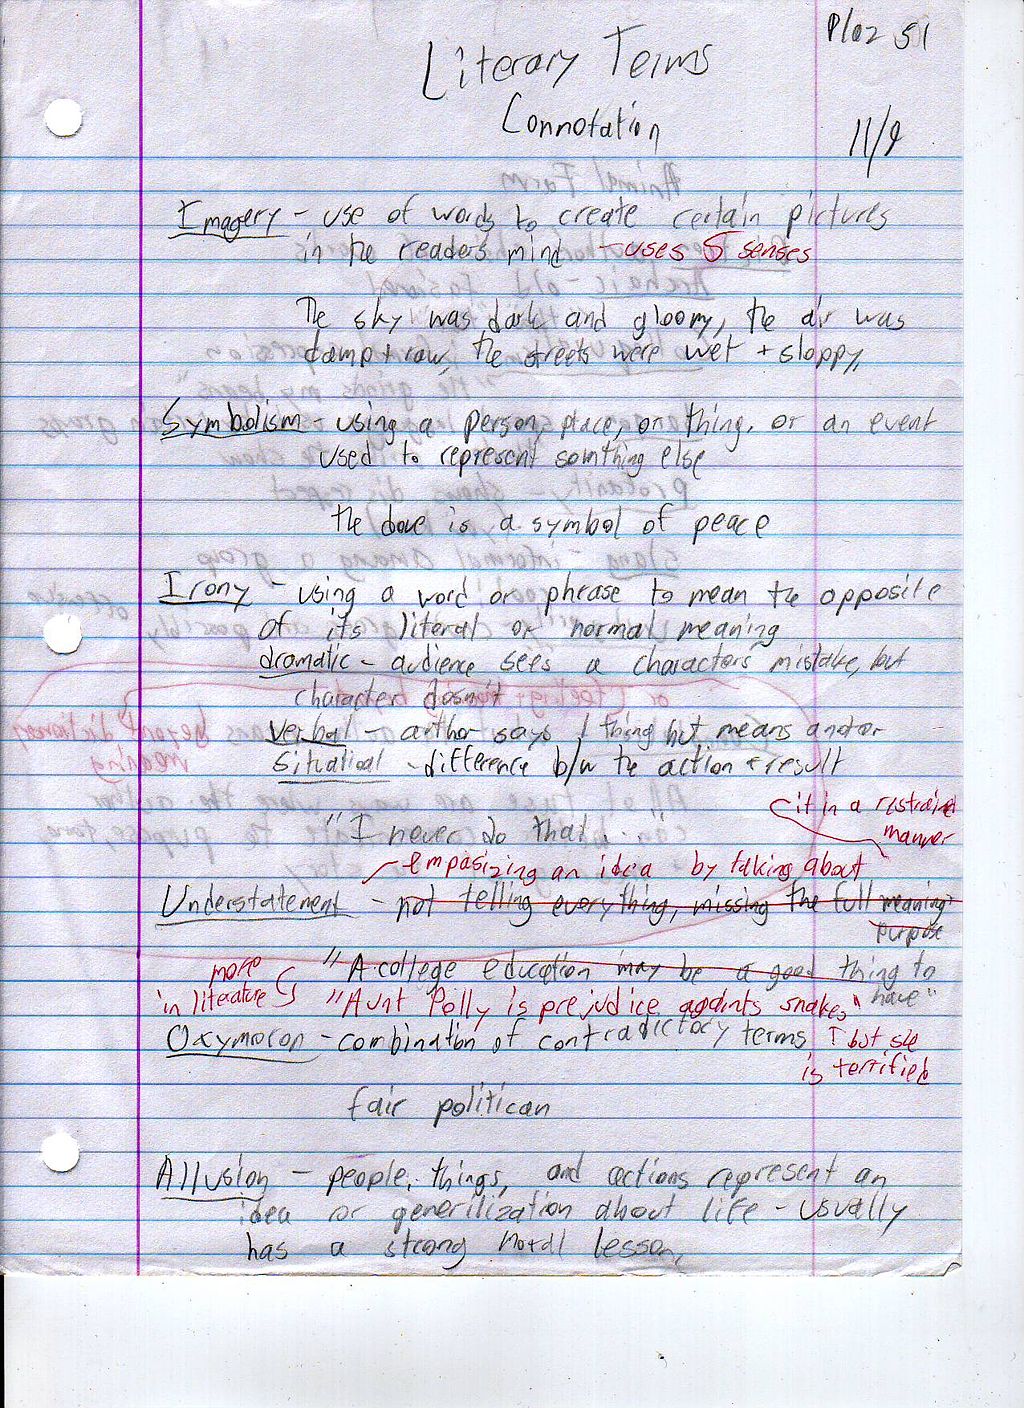 Literary Terms
Connotation
11/9
Imagery - use of words to create certain pictures
in the readers mind - uses 5 senses
The sky was dark and gloomy, the air was
damp + raw, the streets were wet + sloppy.
Symbolism - using a person, place, or thing, or an event
used to represent somthing else
the dove is a symbol of peace
Irony - using a word or phrase to mean the opposite
of its literal or normal meaning
dramatic - audience sees a characters mistake, but
character doesn't
verbal - author says 1 thing but means another
situational - difference b/w the action + result
"I never do that."
it in a restrained
manner
empasizing an idea by taking about
Understatement - not telling everything, missing the full meaning
purpose
"A college education may be a good thing to
have"
more
in literature "Aunt Polly is prejudice againts snakes"
Oxymoron - combination of contradictory terms
but she
is terrified
fair politican
Allusion - people, things, and actions represent an
idea or generilization about life - usually
has a strong moral lesson.